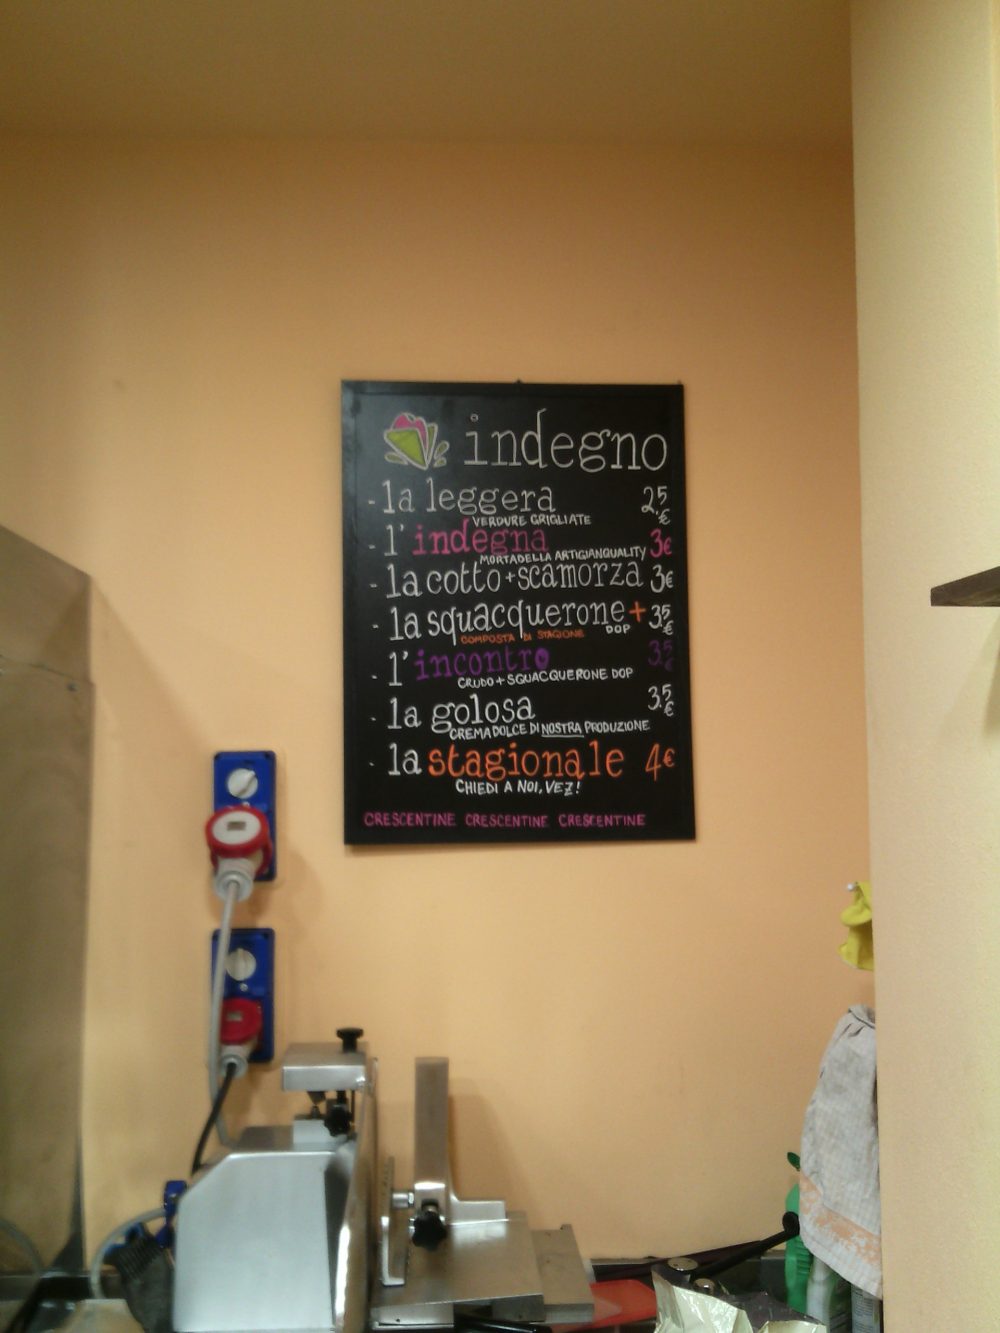 indegno
- la leggera 2.5 €
VERDURE GRIGLIATE
- l' indegna 3€
MORTADELLA ARTIGIANQUALITY
- la cotto+scamorza 3€
- la squacquerone+ 3.5 €
COMPOSTA DI STAGIONE DOP
- l' incontro 3.5 €
CRUDO + SQUACQUERONE DOP
- la golosa 3.5 €
CREMA DOLCE DI NOSTRA PRODUZIONE
- la stagionale 4€
CHIEDI A NOI, VEZ!
CRESCENTINE CRESCENTINE CRESCENTINE